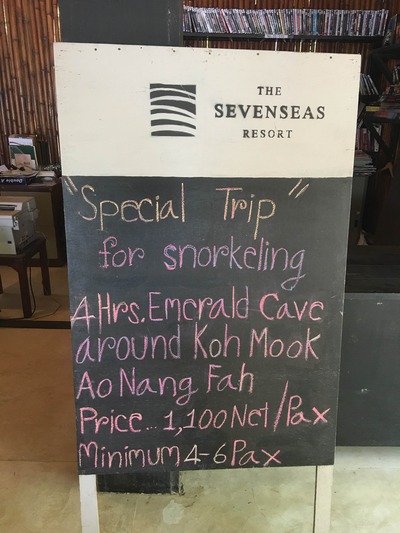 THE
SEVENSEAS
RESORT
"Special Trip"
for snorkeling
4 Hrs. Emerald Cave
around Koh Mook
Ao Nang Fah
Price... 1,100 Net/Pax
Minimum 4-6 Pax
Double A